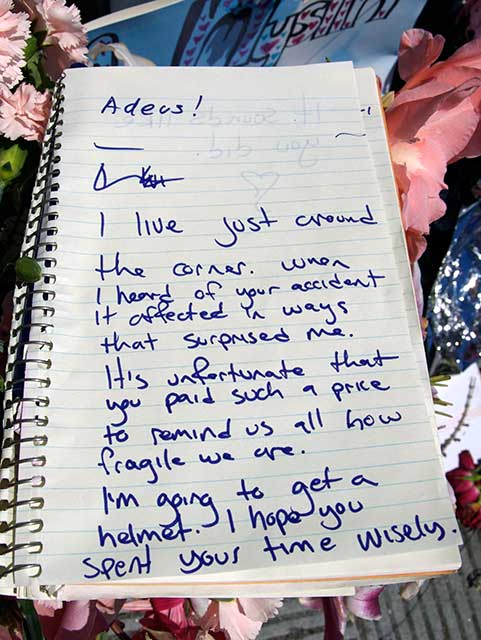 Adeus!
It sounds like
you did.
I live just around
the corner. When
I heard of your accident
it affected in ways
that surprised me.
It's unfortunate that
you paid such a price
to remind us all how
fragile we are.
I'm going to get a
helmet. I hope you
spent your time wisely.